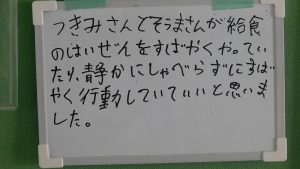 つきみさんとそうまさんが給食
のはいぜんをすばやくやってい
たり、静かにしゃべらずにすば
やく行動していていいと思いま
した。